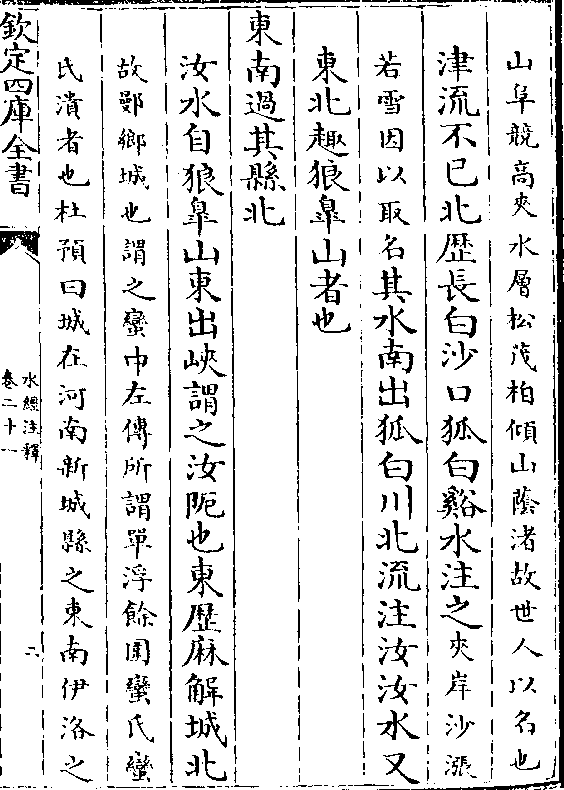 山阜競高夾水層松茂柏傾山蔭渚故世人以名也
津流不已北歴長白沙口狐白谿水注之夾岸沙漲
若雪因以取名其水南出狐白川北流注汝汝水又
東北趣狼臯山者也
東南過其縣北
汝水自狼臯山東出峽謂之汝阨也東歴麻解城北
故鄤鄉城也謂之蠻中左傳所謂單浮餘圍蠻氏蠻
氏潰者也杜預曰城在河南新城縣之東南伊洛之
欽定四庫全書
水經注釋
卷二十一
二